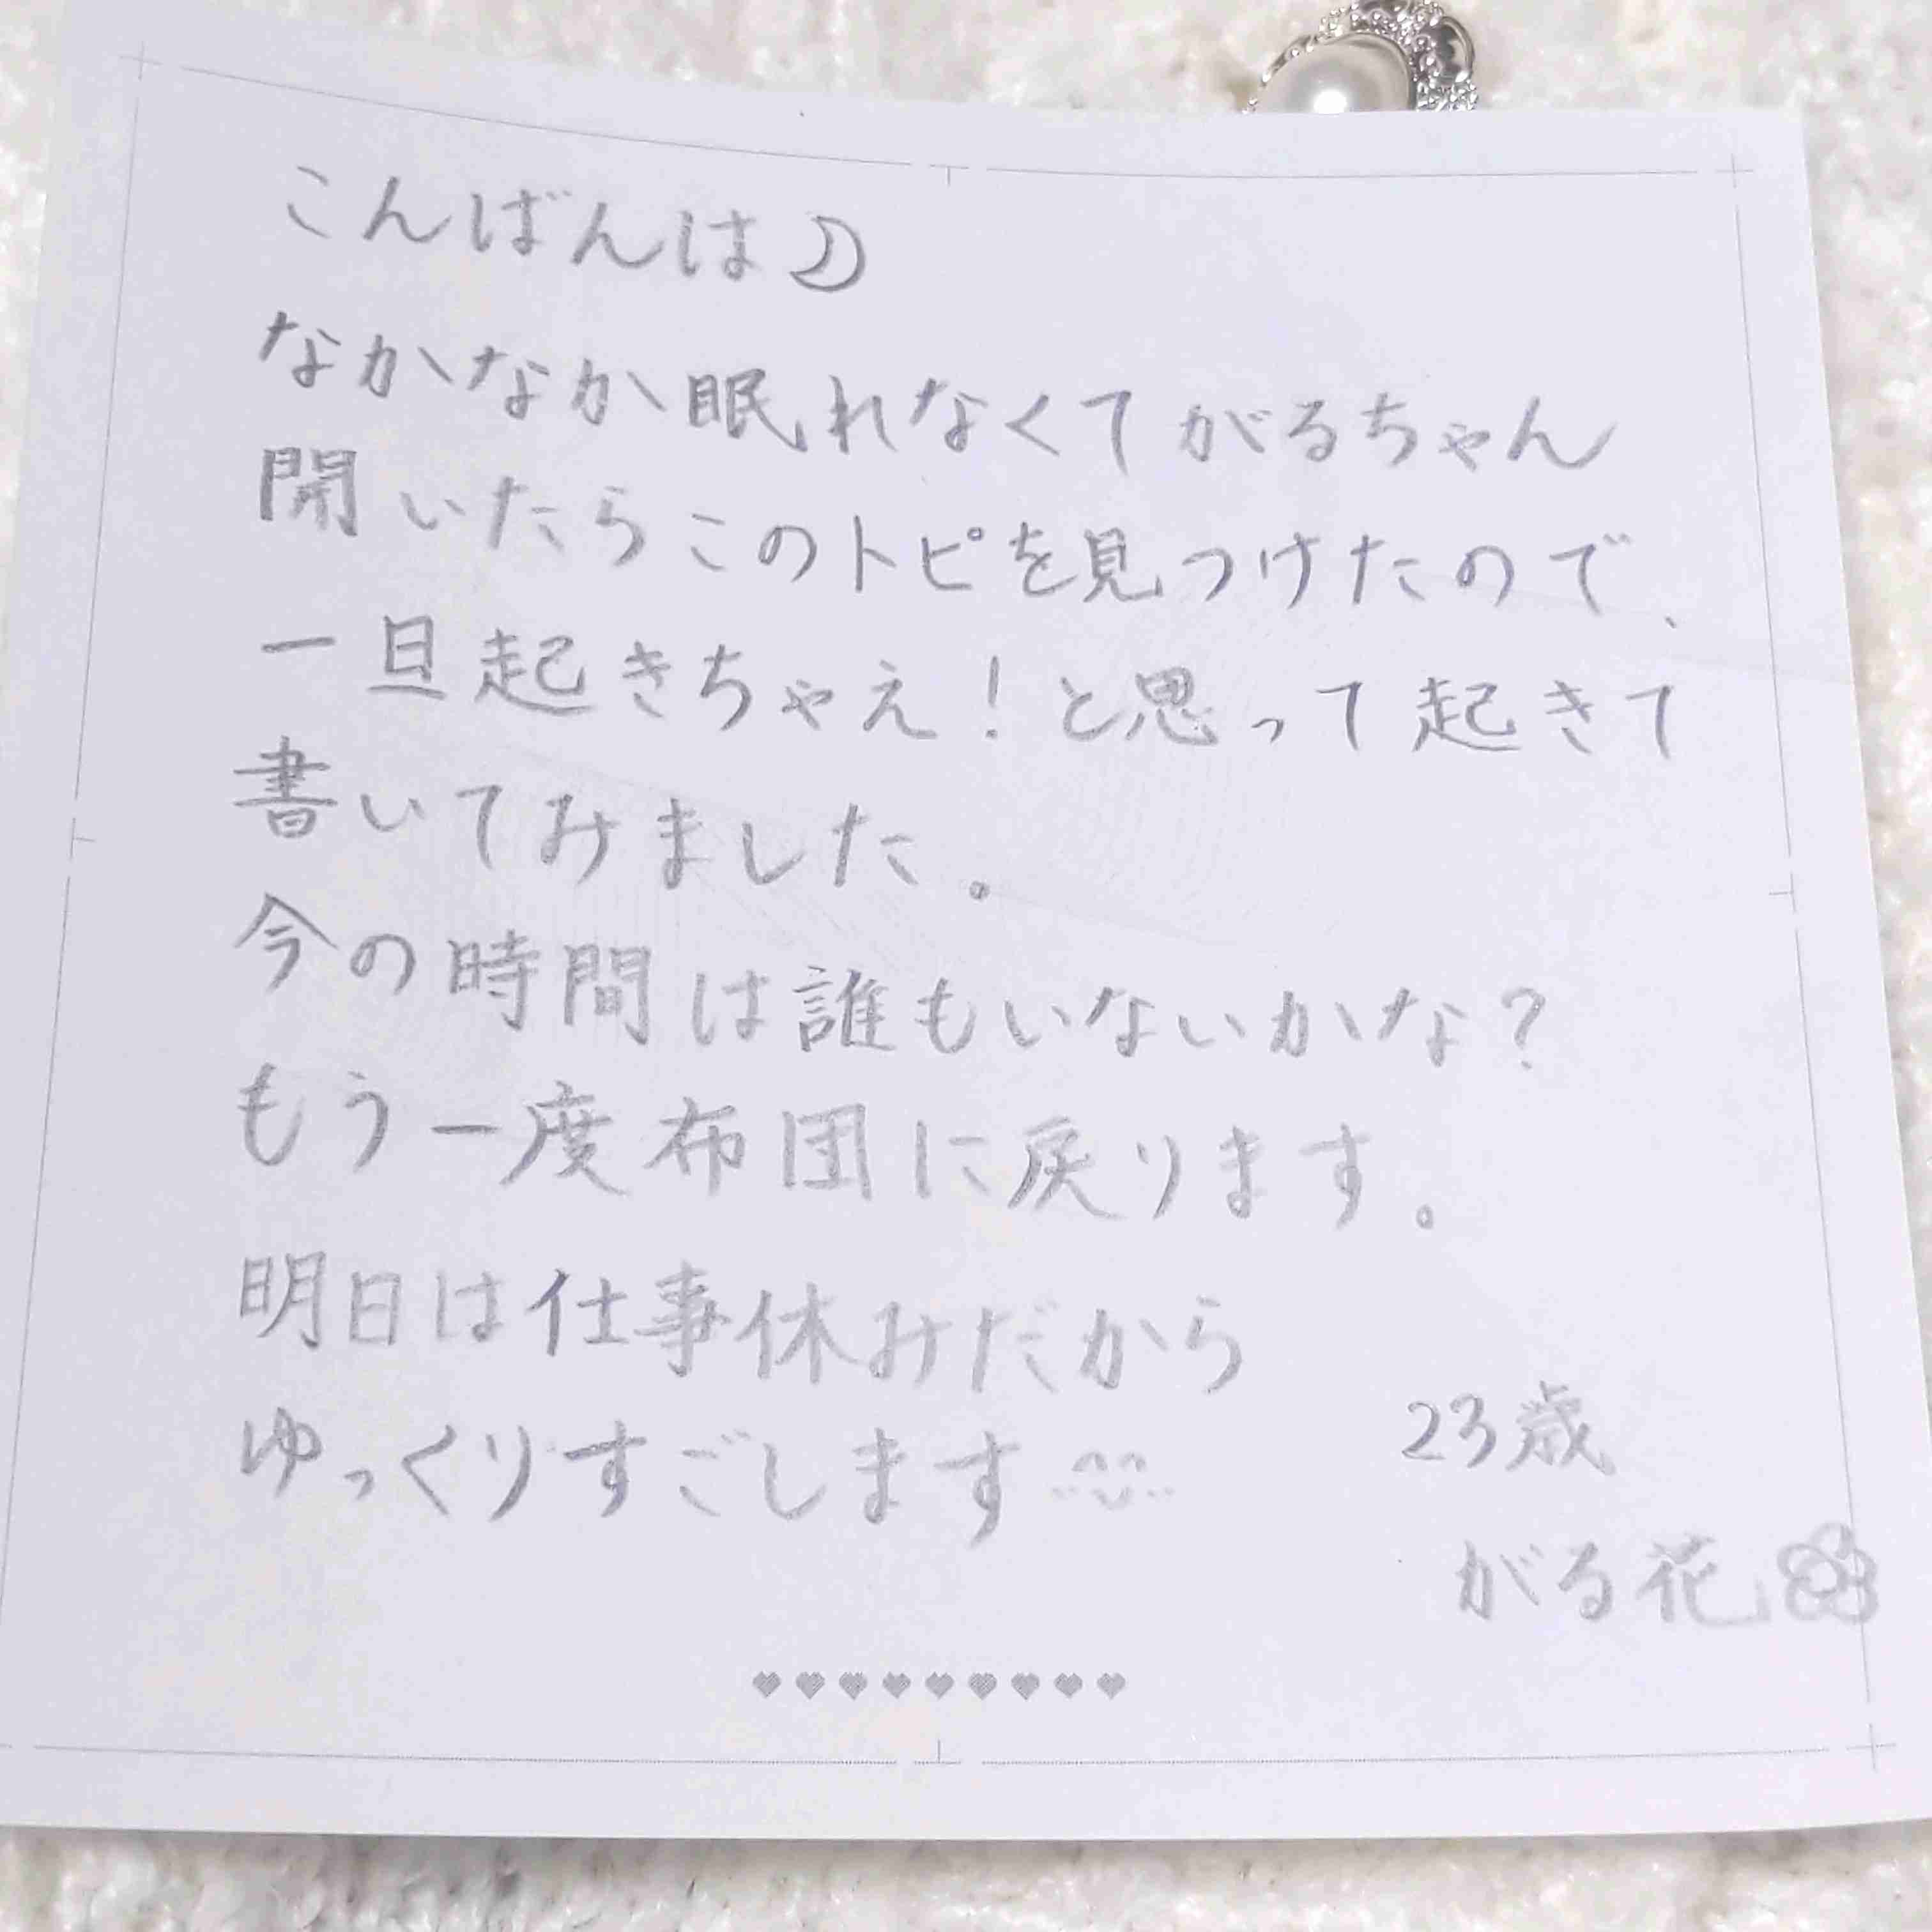 こんばんは☽
なかなか眠れなくてがるちゃん
開いたらこのトピを見つけたので、
一旦起きちゃえ！と思って起きて
書いてみました。
今の時間は誰もいないかな？
もう一度布団に戻ります。
明日は仕事休みだから
ゆっくりすごします
23歳
がる花
♥♥♥♥♥♥♥♥♥